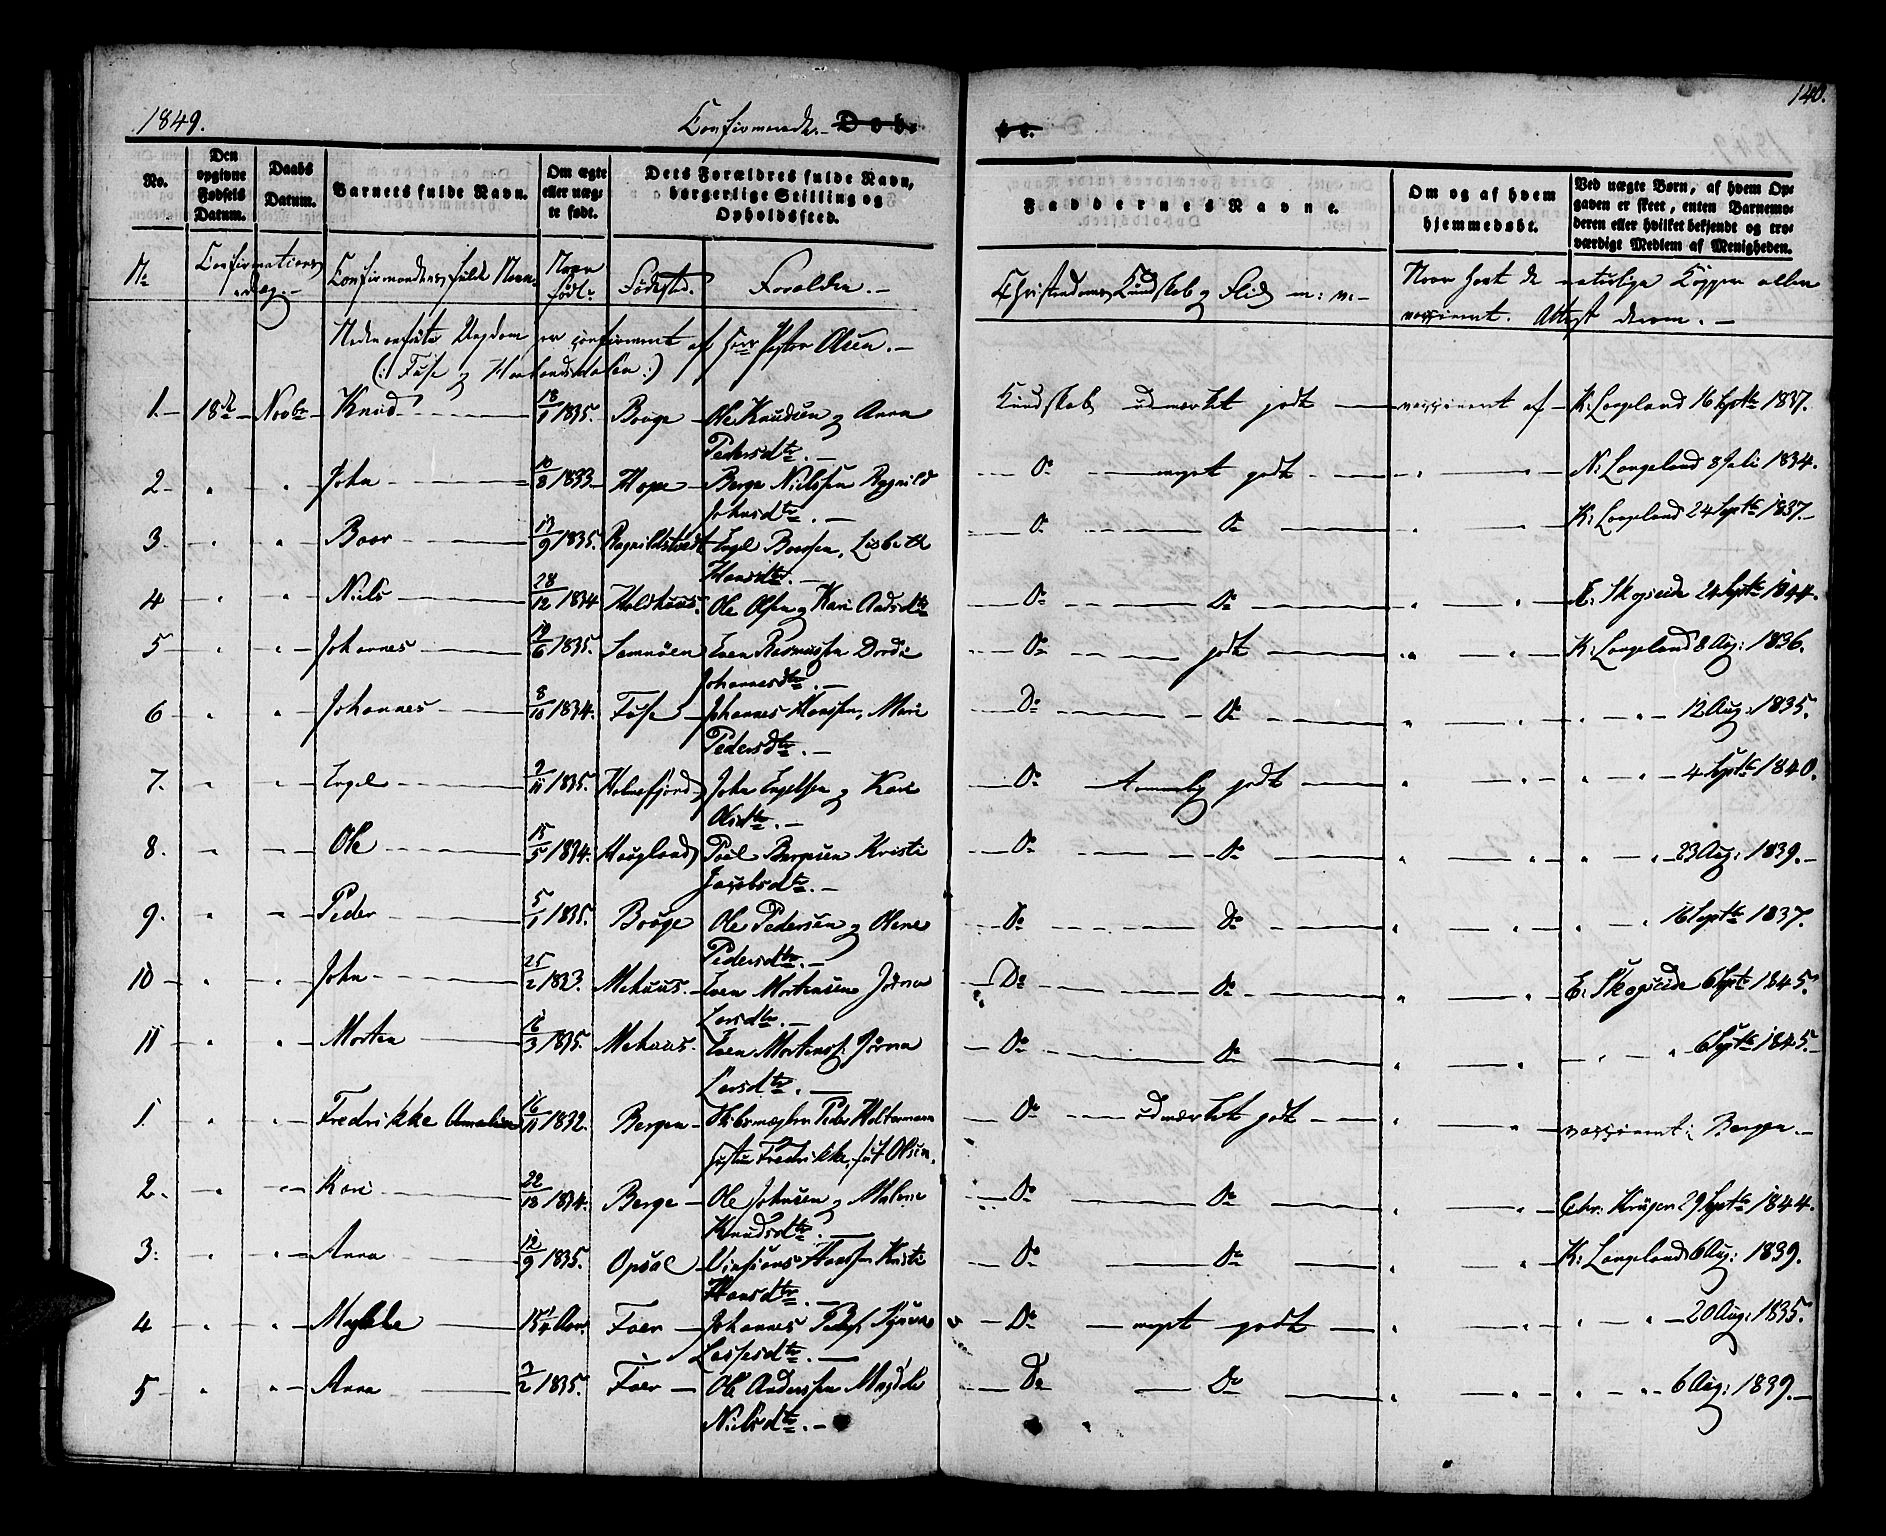 1849. Confirmerede. Døbte. 140.
No. | Den opgivne Fødsels Datum. | Daabs Datum. | Barnets fulde Navn. | Om ægte eller uægte født. | Dets Forældres fulde Navn, borgerlige Stilling og Opholdssted. | Faddernes Navne. | Om og af hvem hjemmedøbt. | Ved uægte Børn, af hvem Opgaven er skeet, enten Barnemoderen eller hvilket bekjendt og troværdigt Medlem af Menigheden.
No | Confirmations dag. | Confirmandens fulde Navn. | Naar født. | Fødested. | Forældre. | Christendoms Kundskab og Flid m: v: | Naar havt de naturlige Kopper eller vaccineret. Attest derom.
Nedenanførte Ungdom er confirmeret af Herr Pastor Olsen.
(: Fuse og Haalandsdalen :)
1. 18de Novbr Knud 18/1 1835. Bouge Ole Knudsen og Anna Kundskab udmærket godt vaccineret af K: Langeland 16 Septbr 1837.
Pedersdtr.
2 " " John 10/8 1833 Hope Berge Nielssen Ragnild Do meget godt " " N: Langeland 8 Juli 1834.
Johnsdtr.
3. " " Baar 17/9 1835. Ragnildstvedt Engel Baarsen, Lisbeth Do Do " " K: Langeland 24 Septbr 1837.
Hansdtr.
4 " " Niels 28/12 1834 Holdhuus. Ole Olsen og Kari Aadsdtr Do Do " " E: Skogseide 24 Septbr 1844.
5 " " Johannes 19/6 1835. Samnøen Even Rasmussen Dordi Do godt " " K: Langeland 8 Aug: 1836.
Johannesdtr.
6 " " Johannes 8/10 1834. Fuse Johannes Hanssen, Mari Do Do " " " " 12 Aug: 1835.
Pedersdtr.
7. " " Engel 9/11 1835. Holmefjord John Engelsen og Kari Do temmelig godt " " " " 4 Septbr 1840.
Olsdtr.
8. " " Ole 15/5 1834. Hougland Poul Bergesen Kristi Do Do " " " " 23 Aug: 1839.
Jacobsdtr.
9. " " Peder 5/1 1835. Bouge Ole Pedersen og Olene Do Do " " " " 16 Septbr 1837.
Pedersdtr.
10 " " John 25/2 1833. Mehuus. Even Mortensen Jorna Do Do " " E: Skogseide 6 Sept 1845.
Larsdtr.
11 " " Morten 16/3 1835. Mehuus. Even Mortens. Jorna Do Do " " " " 6 Septbr 1845.
Larsdtr.
1. " " Fredrikke Amalia 16/11 1832. Bergen Peder Holtermann Do udmærket godt " " vaccineret i Bergen.
Fredrikke, født Olsen.
2. " " Kari 22/12 1834. Berge Ole Johnsen og Malene Do Do " " Chr: Krüger 29 Septbr 1844.
Knudsdtr.
3. " " Anna 12/9 1835. Opsal Hanssen Kristi Do Do " " K: Langeland 6 Aug: 1839.
Hansdtr.
4 " " Magdele Foer Johannes Peders. Synneve Do meget godt " " " " 20 Aug: 1835.
Lassesdtr.
5 " " Anna 7/2 1835. Foer Ole Anderssen Magdele Do Do " " " " 6 Aug: 1839.
Nielsdtr.